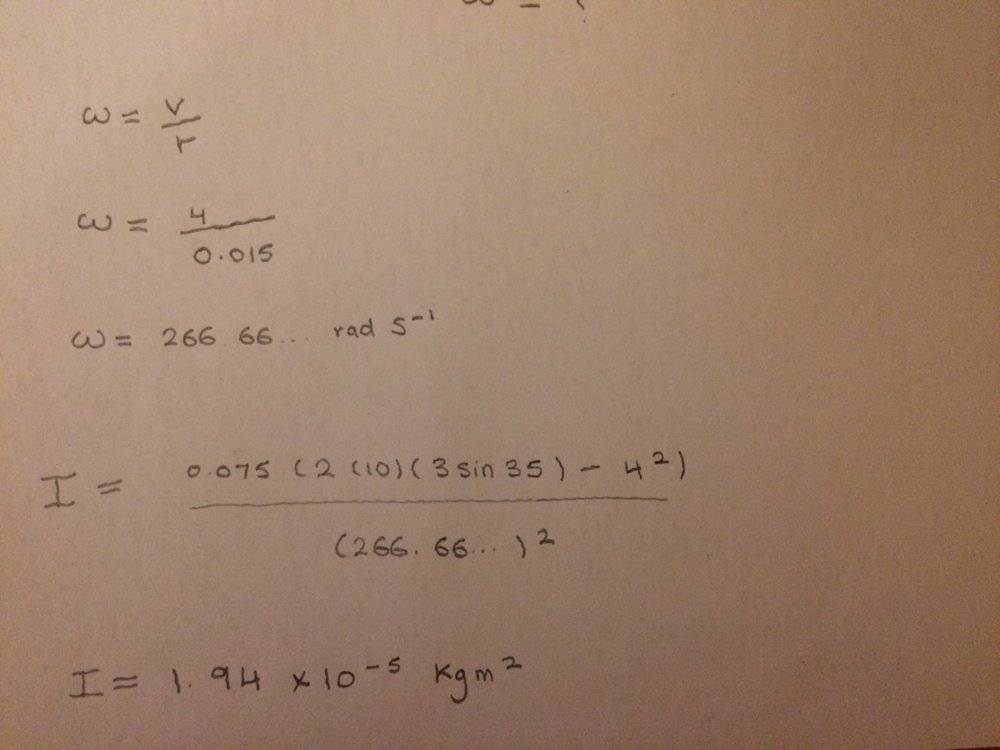 ω = v/r
ω = 4/0.015
ω = 266 66... rad s⁻¹
I = 0.075 (2 (10)(3 sin 35) - 4²) / (266.66...)²
I = 1.94 × 10⁻⁵ kgm²